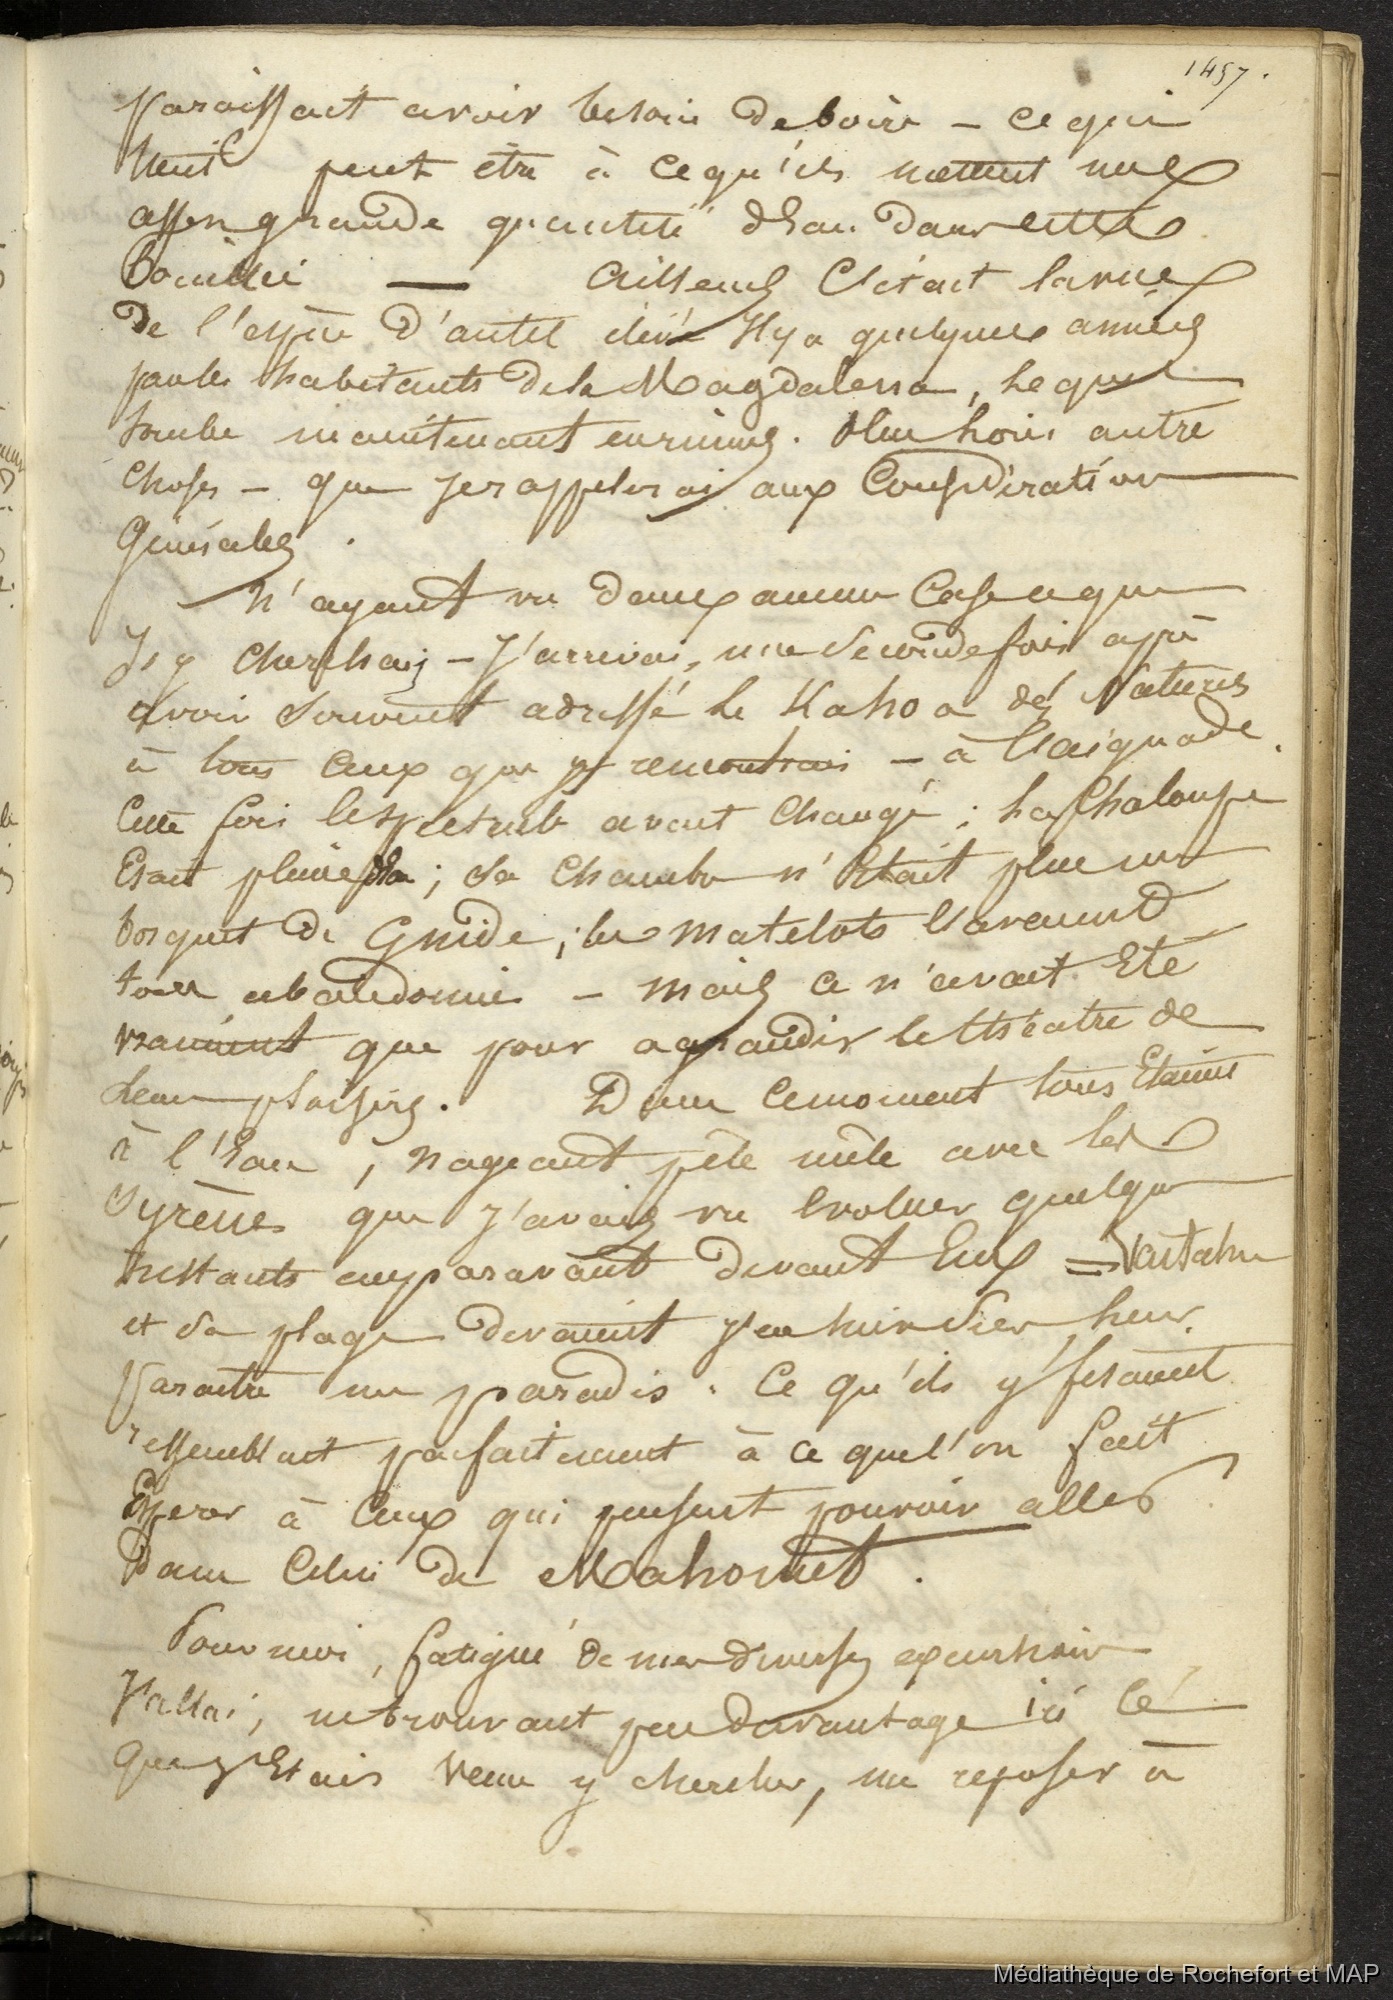 1457.
Paraissant avoir besoin de boire – ce qui
tient peut être à ce qu'ils mettent une
assez grande quantité d'Eau dans cette
bouillie — Ailleurs C'était la vue
de l'espèce d'autel élevé Il y a quelques années
par les habitants de la Magdalena, lequel
tombe maintenant en ruines. Plus loin autre
Choses – que je rappelerai aux Considérations
Générales.
N'ayant vu dans aucune Case ce que
J'y Cherchais – J'arrivai, une seconde fois après
avoir souvent adressé le Kahoa des Naturels
à tous Ceux que je rencontrais – à l'aiguade.
Cette fois le spectacle avait Changé; la Chaloupe
Etait pleine d'Eau; sa Chambre n'Etait plus un
bosquet de Gnide; les matelots l'avaient
tous abandonnée – mais ce n'avait Eté
vraiment que pour agrandir le théatre de
leurs plaisirs. Dans ce moment tous Etaient
à l'Eau, nageant pêle mêle avec les
Syrènes que J'avais vu Evoluer quelques
Instants auparavant devant Eux = Vaitahu
et sa plage devaient
Paraitre un paradis. Ce qu'ils y fesaient
ressemblait parfaitement à ce que l'on fait
Esperer à Ceux qui pensent pouvoir aller
Dans Celui de Mahomet.
Pour moi, fatigué de mes diverses excursions
J'allai, ne trouvant pas davantage ici Ce
que J'Etais Venu y chercher, me reposer à
Médiathèque de Rochefort et MAP